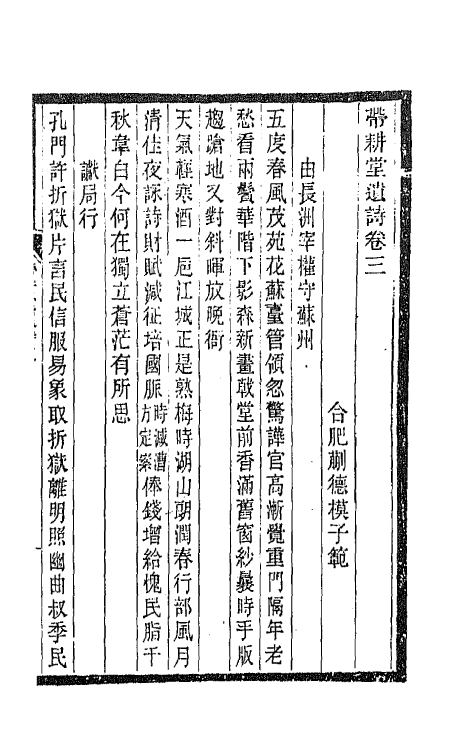 帶耕堂遺詩卷三
合肥蒯德模子範
由長洲宰權守蘇州
五度春風茂苑花蘇臺管領忽驚譁官高漸覺重門隔年老
愁看兩鬢華階下影森新畫戟堂前香滿舊窗紗曩時手版
趨蹌地又對斜暉放晚衙
天氣輕寒酒一巵江城正是熟梅時湖山朝潤春行部風月
清佳夜詠詩財賦減征培國脈時減漕方定案俸錢增給愧民脂干
秋韋白今何在獨立蒼茫有所思
讞局行
孔門許折獄片言民信服易象取折獄離明照幽曲叔季民